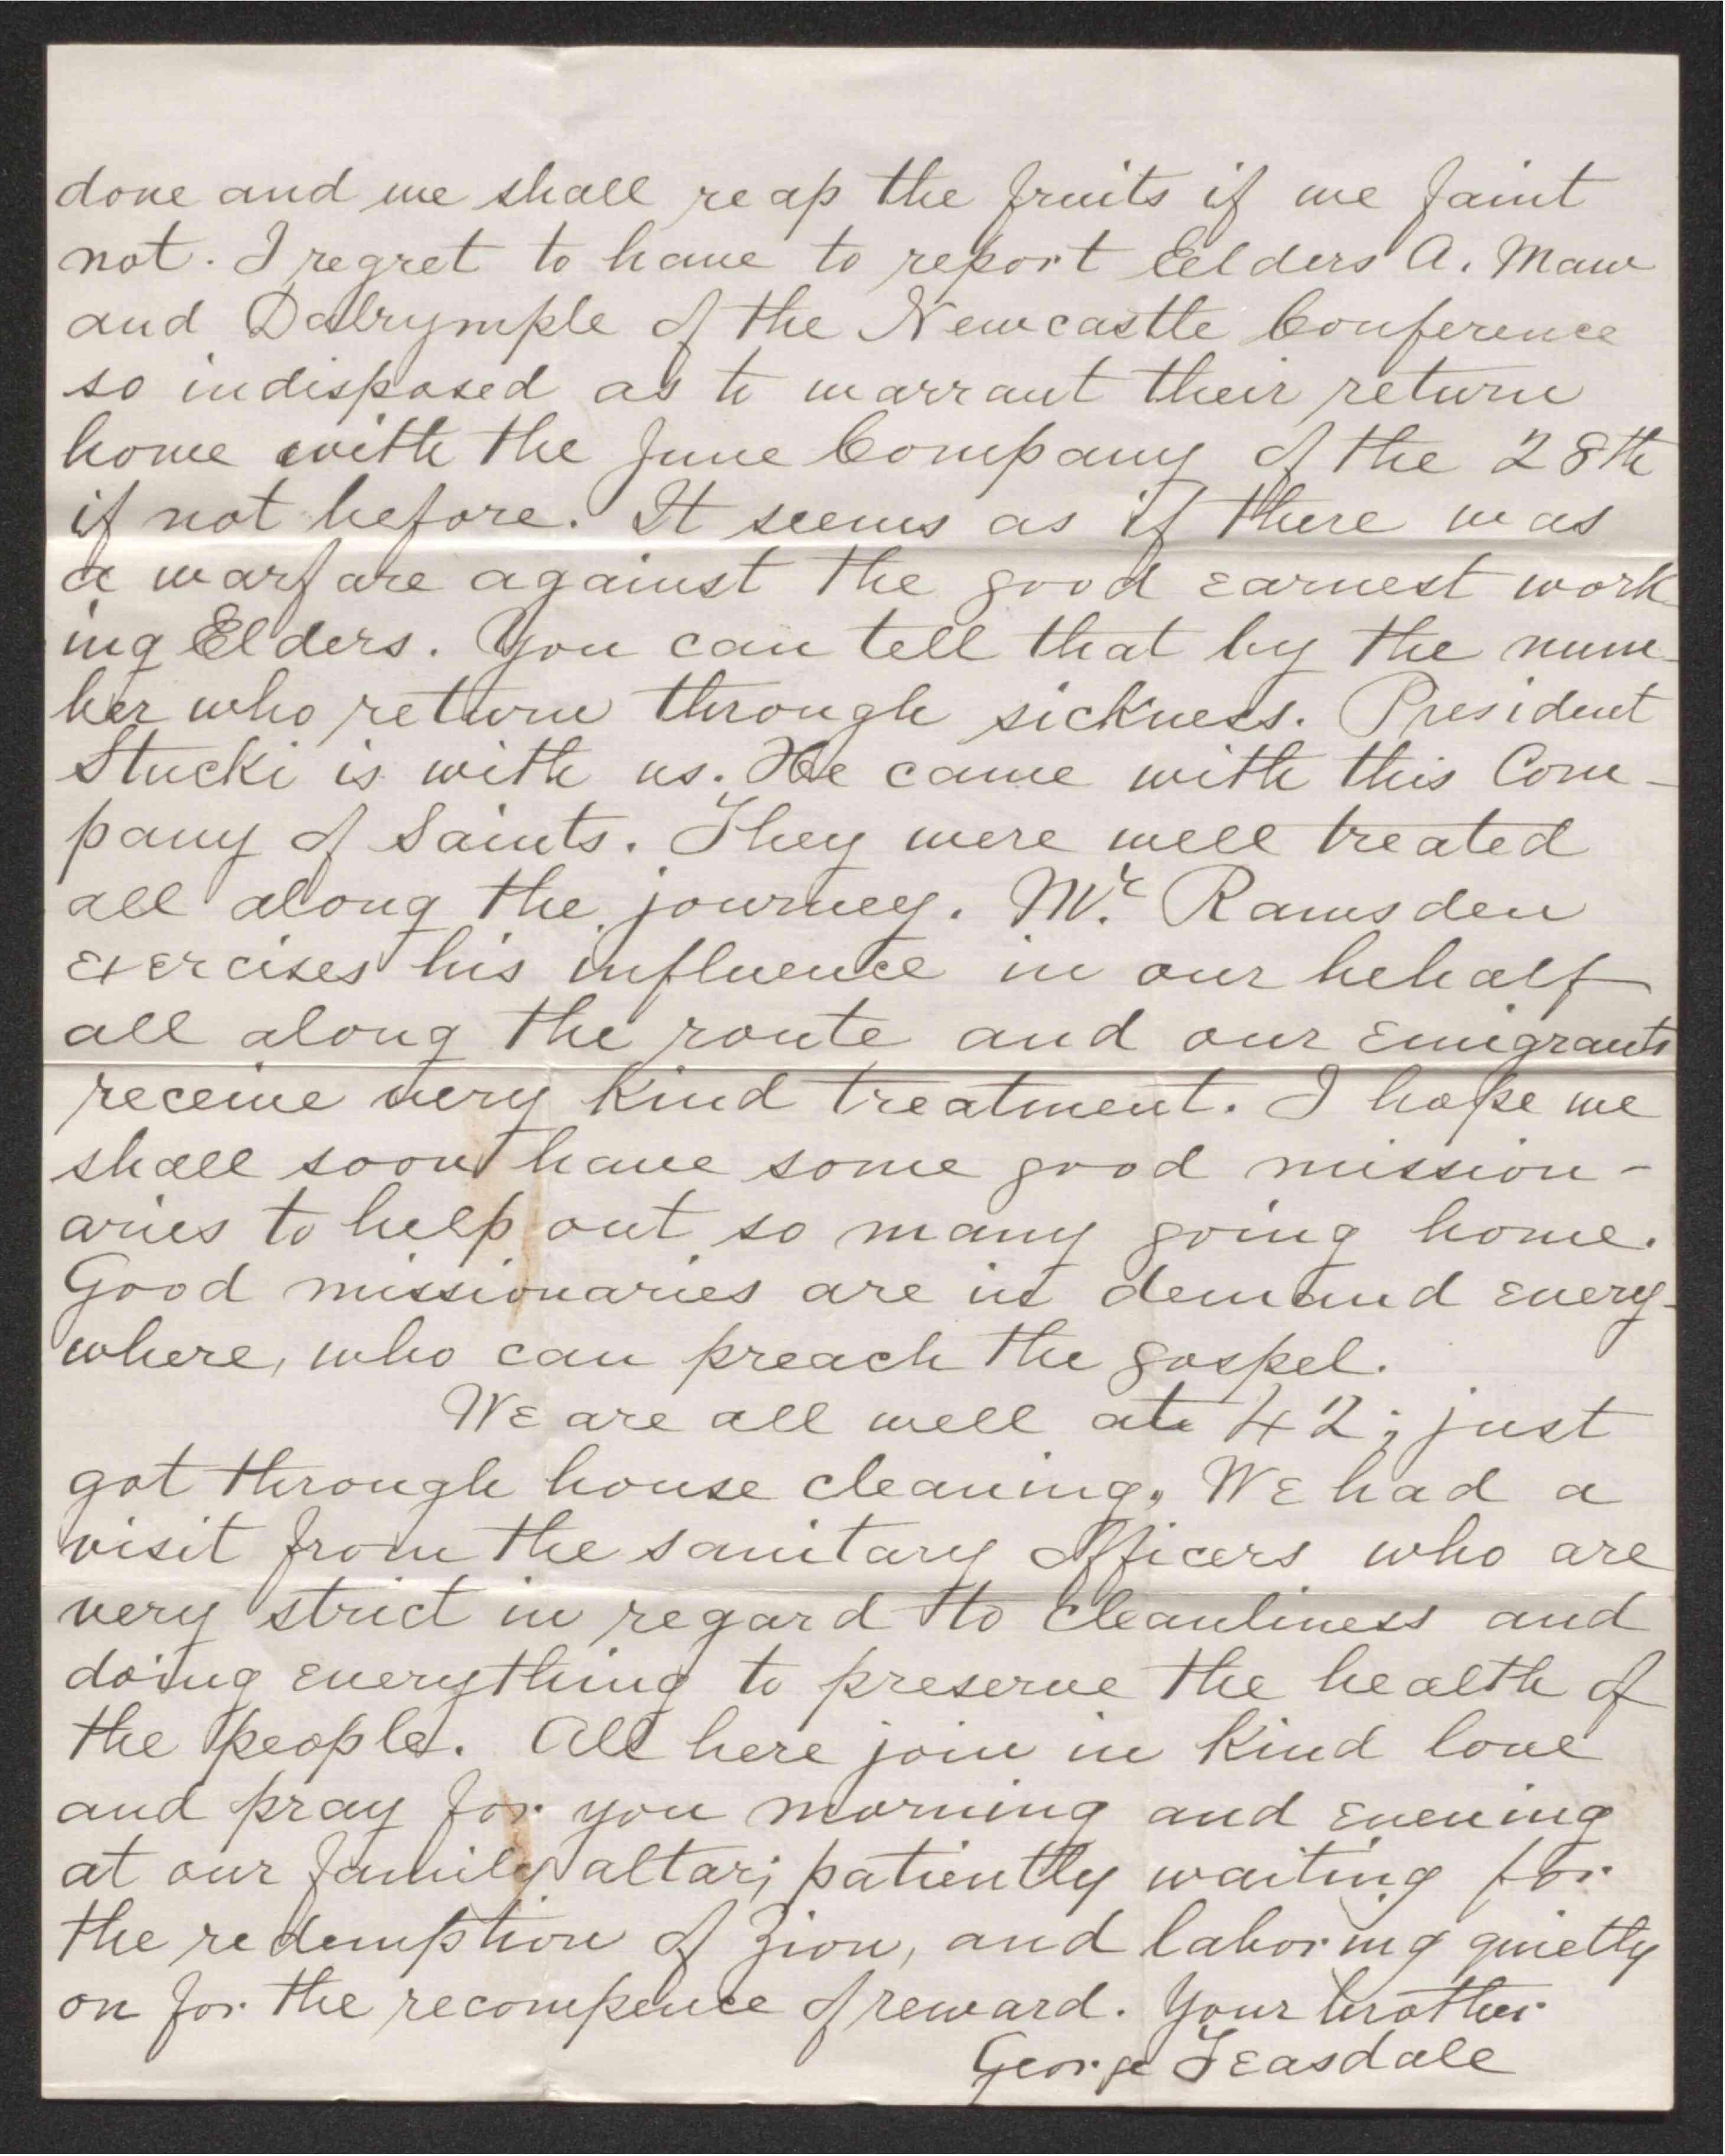 done and we shall reap the fruits if we faint
not. I regret to have to report Elders A. Maw
and Dalrymple of the Newcastle Conference
so indisposed as to warrant their return
home with the June Company of the 28th
if not before. It seems as if there was
a warfare against the good earnest work-
ing Elders. You can tell that by the num-
ber who return through sickness. President
Stucki is with us. He came with this Com-
pany of Saints. They were well treated
all along the journey. Mr. Ramsden
exercises his influence in our behalf
all along the route and our emigrants
receive very kind treatment. I hope we
shall soon have some good mission-
aries to help out so many going home.
Good missionaries are in demand every-
where, who can preach the gospel.
We are all well at 42; just
got through house cleaning. We had a
visit from the sanitary officers who are
very strict in regard to cleanliness and
doing everything to preserve the health of
the people. All here join in kind love
and pray for you morning and evening
at our family altar; patiently waiting for
the redemption of Zion, and laboring quietly
on for the recompence of reward. Your brother
George Teasdale